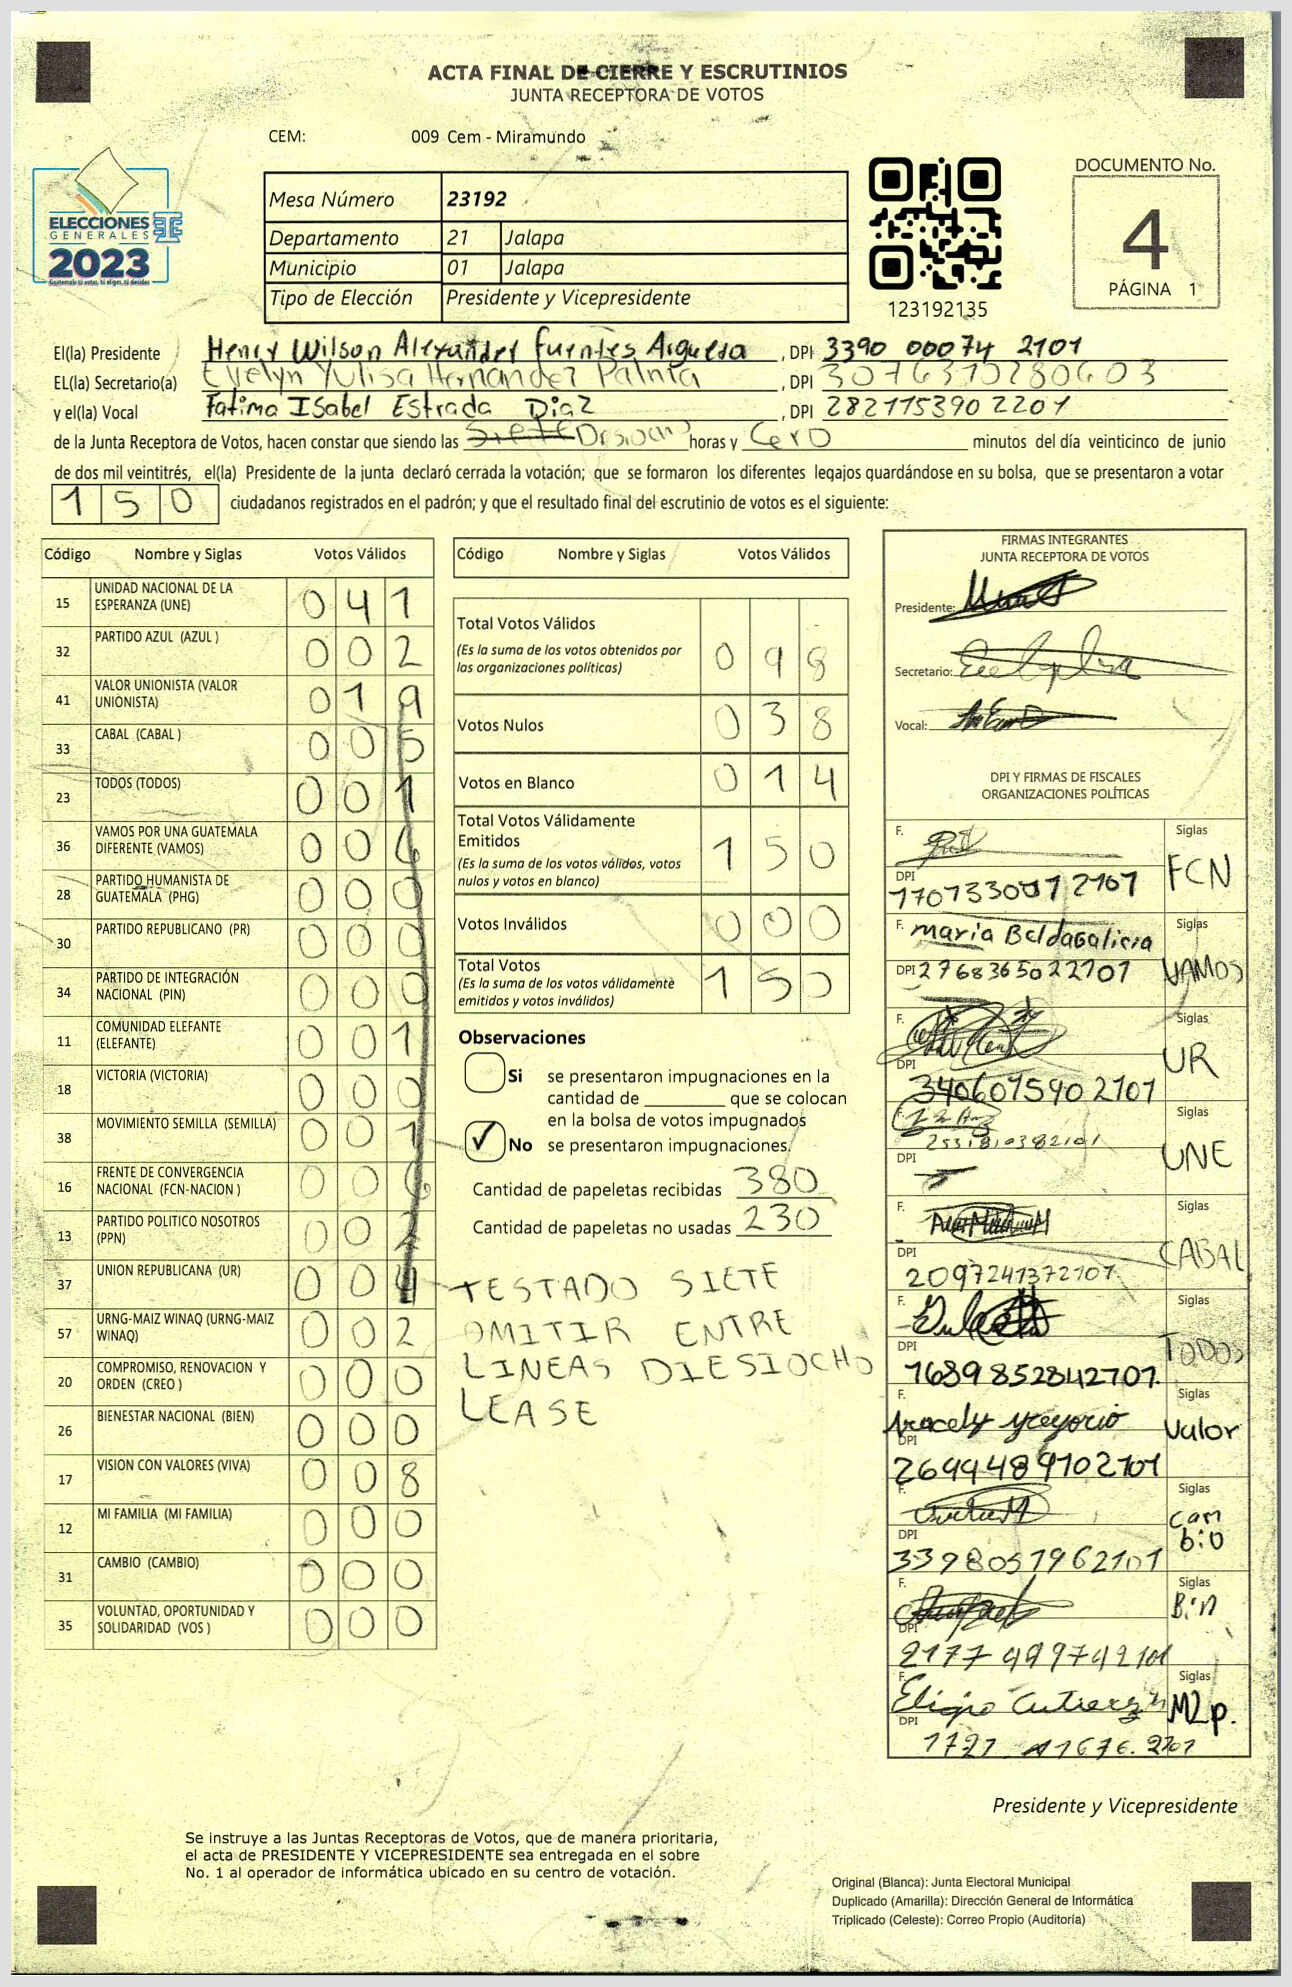 ACTA FINAL DE CIERRE Y ESCRUTINIOS
JUNTA RECEPTORA DE VOTOS
CEM: 009 Cem - Miramundo
ELECCIONES
GENERALES
2023
Mesa Número 23192
Departamento 21 Jalapa
Municipio 01 Jalapa
Tipo de Elección Presidente y Vicepresidente
123192135
DOCUMENTO No.
4
PÁGINA 1
El(la) Presidente Henry Wilson Alexander Fuentes Argueta , DPI 3390 00074 2101
EL(la) Secretario(a) Evelyn Yulisa Hernandez Palma , DPI
y el(la) Vocal Fatima ISabel Estrada Diaz , DPI 2821153902201
de la Junta Receptora de Votos, hacen constar que siendo las horas y Cero minutos del día veinticinco de junio
de dos mil veintitrés, el(la) Presidente de la junta declaró cerrada la votación; que se formaron los diferentes legajos guardándose en su bolsa, que se presentaron a votar
150 ciudadanos registrados en el padrón; y que el resultado final del escrutinio de votos es el siguiente:
Código Nombre y Siglas Votos Válidos
15 UNIDAD NACIONAL DE LA ESPERANZA (UNE) 041
32 PARTIDO AZUL (AZUL ) 002
41 VALOR UNIONISTA (VALOR UNIONISTA) 019
33 CABAL (CABAL ) 005
23 TODOS (TODOS) 001
36 VAMOS POR UNA GUATEMALA DIFERENTE (VAMOS) 006
28 PARTIDO HUMANISTA DE GUATEMALA (PHG) 000
30 PARTIDO REPUBLICANO (PR) 000
34 PARTIDO DE INTEGRACIÓN NACIONAL (PIN) 000
11 COMUNIDAD ELEFANTE (ELEFANTE) 001
18 VICTORIA (VICTORIA) 000
38 MOVIMIENTO SEMILLA (SEMILLA) 001
16 FRENTE DE CONVERGENCIA NACIONAL (FCN-NACION ) 006
13 PARTIDO POLITICO NOSOTROS (PPN) 002
37 UNION REPUBLICANA (UR) 004
57 URNG-MAIZ WINAQ (URNG-MAIZ WINAQ) 002
20 COMPROMISO, RENOVACION Y ORDEN (CREO ) 000
26 BIENESTAR NACIONAL (BIEN) 000
17 VISION CON VALORES (VIVA) 008
12 MI FAMILIA (MI FAMILIA) 000
31 CAMBIO (CAMBIO) 000
35 VOLUNTAD, OPORTUNIDAD Y SOLIDARIDAD (VOS ) 000
Código Nombre y Siglas Votos Válidos
Total Votos Válidos 098
(Es la suma de los votos obtenidos por
las organizaciones políticas)
Votos Nulos 038
Votos en Blanco 014
Total Votos Válidamente
Emitidos 150
(Es la suma de los votos válidos, votos
nulos y votos en blanco)
Votos Inválidos 000
Total Votos 150
(Es la suma de los votos válidamente
emitidos y votos inválidos)
Observaciones
Si se presentaron impugnaciones en la
cantidad de ________ que se colocan
en la bolsa de votos impugnados
✓ No se presentaron impugnaciones.
Cantidad de papeletas recibidas 380
Cantidad de papeletas no usadas 230
TESTADO SIETE
OMITIR ENTRE
LINEAS DIESIOCHO
LEASE
FIRMAS INTEGRANTES
JUNTA RECEPTORA DE VOTOS
Presidente:
Secretario:
Vocal:
DPI Y FIRMAS DE FISCALES
ORGANIZACIONES POLÍTICAS
F. Siglas FCN
DPI
F. Maria Siglas VAMOS
DPI 2768365022101
F. Siglas UR
DPI 3406015902101
F. Siglas UNE
DPI 2531810382101
F. Siglas CABAL
DPI 2097241372101
F. Siglas TODOS
DPI 1689852842101.
F. Aracely Gregorio Siglas Valor
DPI 2699489102101
F. Siglas Cambio
DPI 3398051962101
F. Siglas Bin
DPI 2177499742101
F. Eligio Gutierrez Siglas MLp.
DPI
Presidente y Vicepresidente
Se instruye a las Juntas Receptoras de Votos, que de manera prioritaria,
el acta de PRESIDENTE Y VICEPRESIDENTE sea entregada en el sobre
No. 1 al operador de informática ubicado en su centro de votación.
Original (Blanca): Junta Electoral Municipal
Duplicado (Amarilla): Dirección General de Informática
Triplicado (Celeste): Correo Propio (Auditoría)